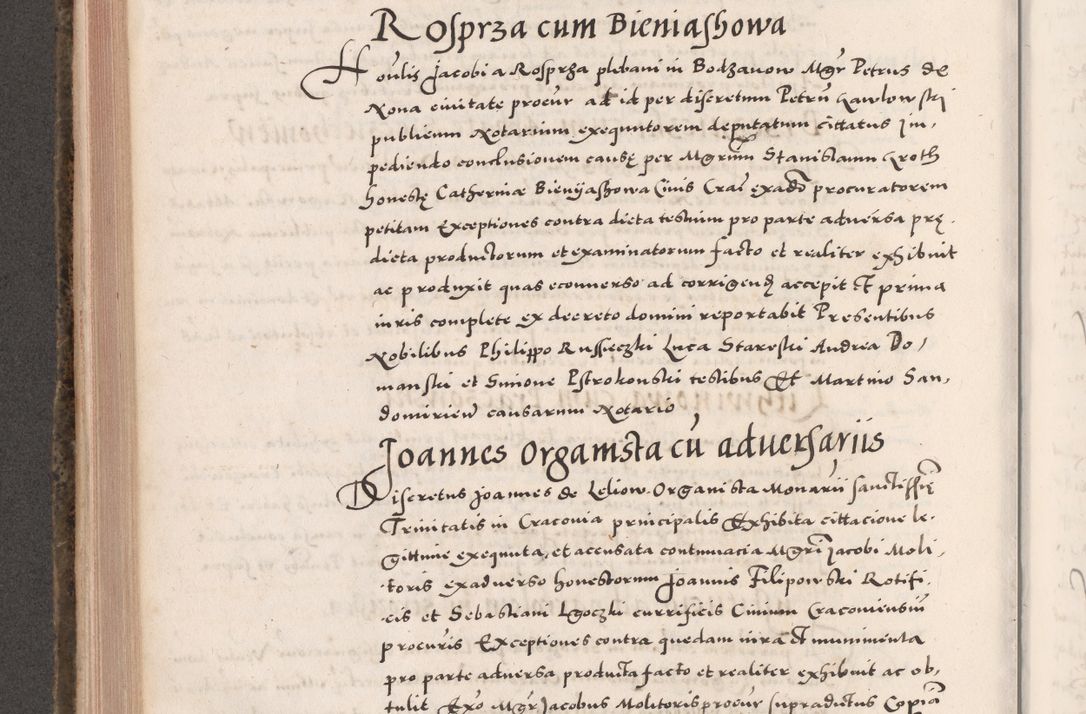 Rosprza cum Bieniashowa
Houlis Jacobi a Rosprza plebani in Bodzanow Mgr Petrus de
Nona ciuitate procur ad id per discretum Petrū Kawlowski
publicum Notarium exequutorem deputatum cittatus im,
pediendo conclusionem causę per Mgrum Stanislaum Kroth
honestę Catherinæ Bienijashowa Ciuis Crac exadō procuratorem
petitam Exceptiones contra dicta testium pro parte aduersa prę,
dicta productorum et examinatorum facto et realiter exhibuit
ac produxit quas econuerso ad corrigend accepit et prima
iuris complete ex decreto domini reportabit Presentibus
Nobilibus Philippo Russieczki Luca Stareski Andrea Do,
manski et Simone Pstrokonski testibus Et Martino San,
domirien causarum Notario
Joannes Organista cū aduersariis
Discretus Joannes de Leliow Organista Monarii sanctissę
Trinitatis in Cracouia principalis Exhibita cittacione le,
gittime exequuta, et accusata contumacia Mgri Jacobi Moli,
toris exaduerso honestorum Joannis Filipowski Rotifi,
cis et Sebastiani Lgoczki currificis Ciuium Cracouiensiū
procuris Exceptiones contra quedam iura et munimenta
pro parte aduersa producta facto et realiter exhibuit ac ob,
tulit Exō Mgr Jacobus Molitoris procur supradictus Copiā